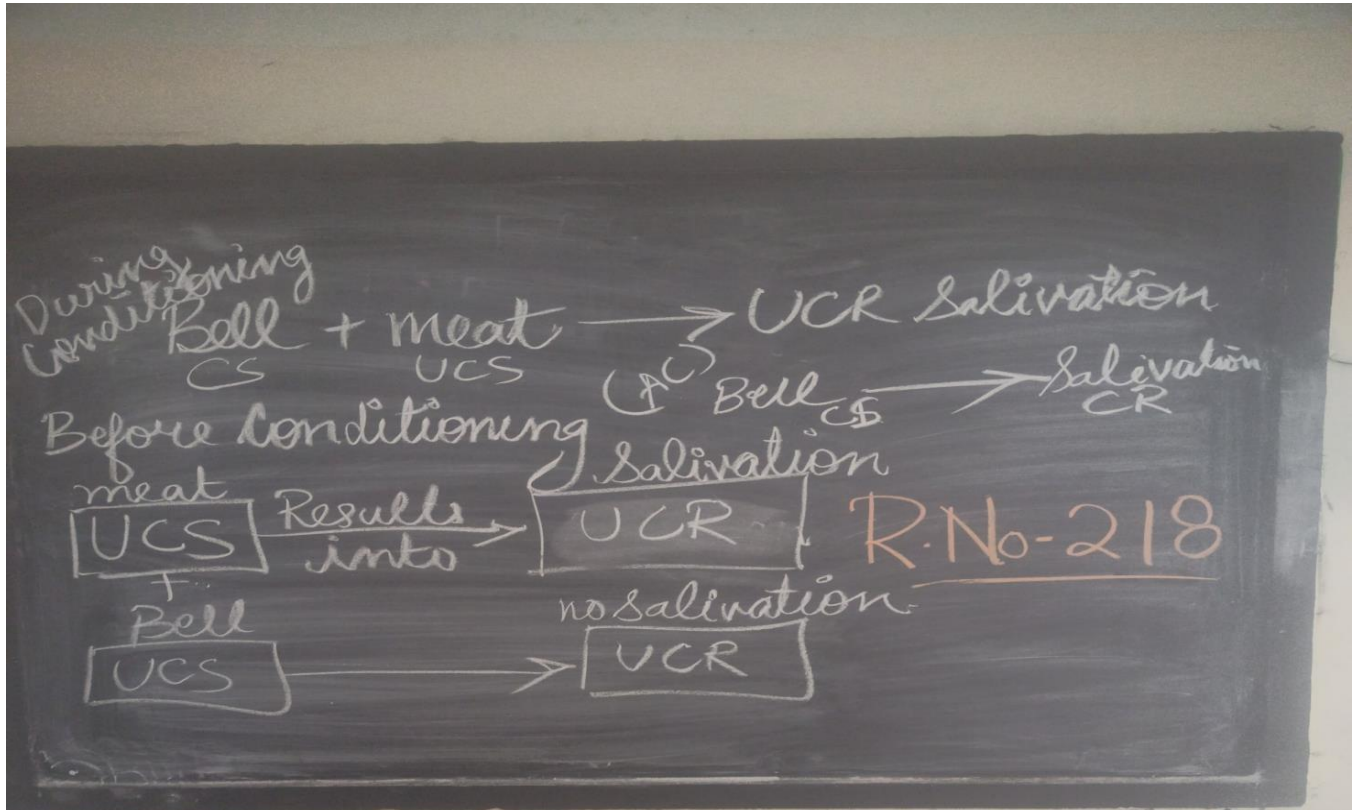 During
Conditioning
Bell + meat → UCR Salivation
CS UCS
(AC) Bell CS → Salivation
CR
Before Conditioning
meat Salivation
UCS Results into → UCR
R.No-218
+
Bell no salivation
UCS → UCR